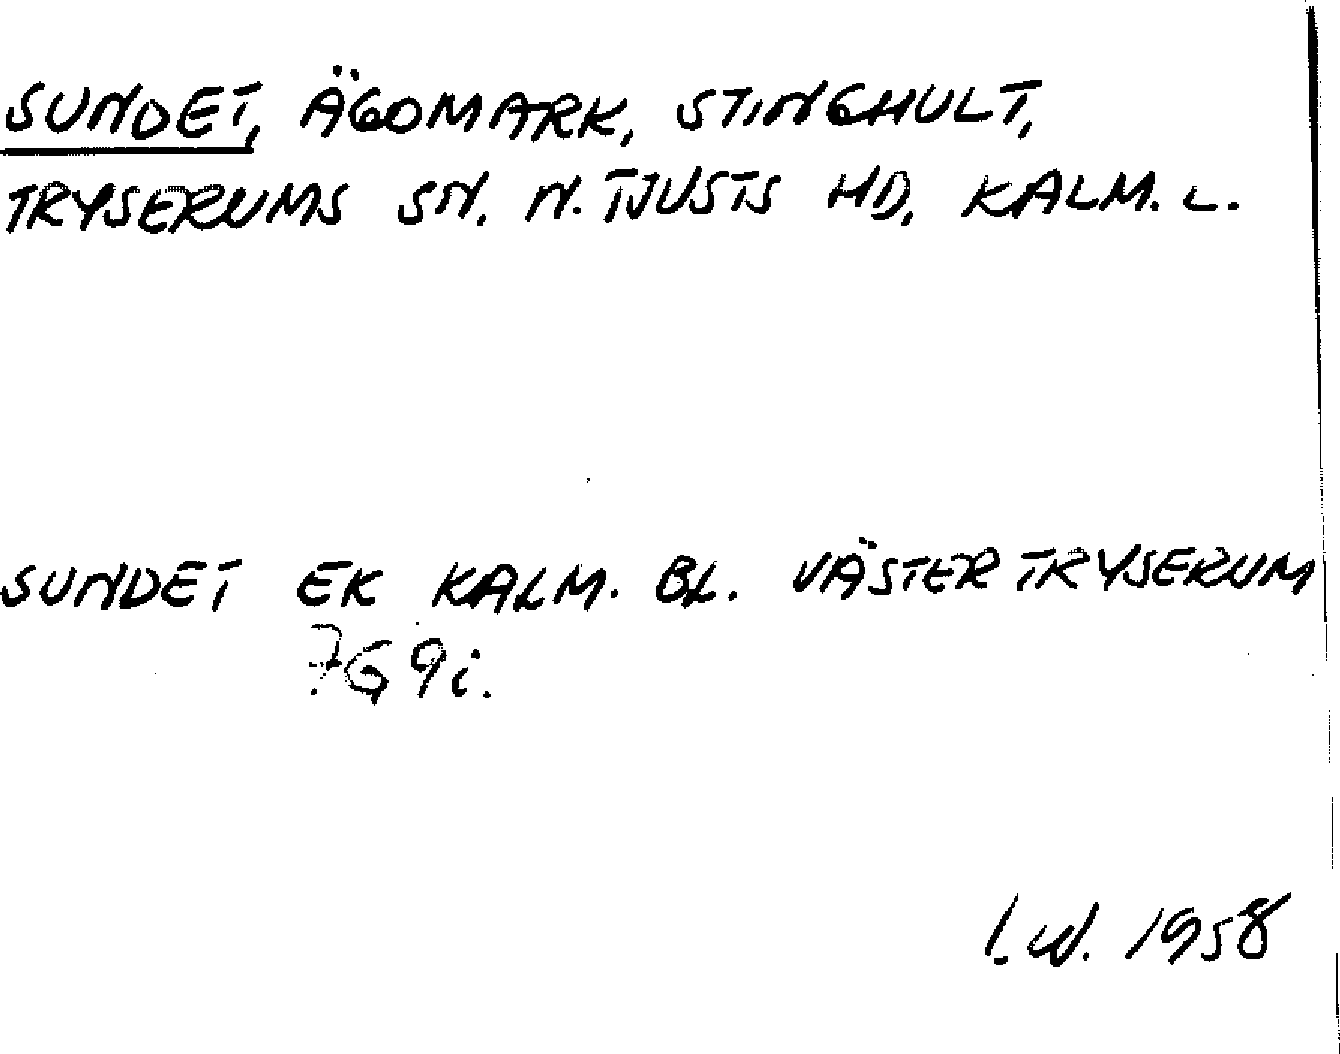 SUNDET, ÄGOMARK, STINGHULT,
TRYSERUMS SN. N. TJUSTS HD, KALM. L.
SUNDET EK KALM. BL. VÄSTER TRYSERUM
7G 9i.
I.W. 1958